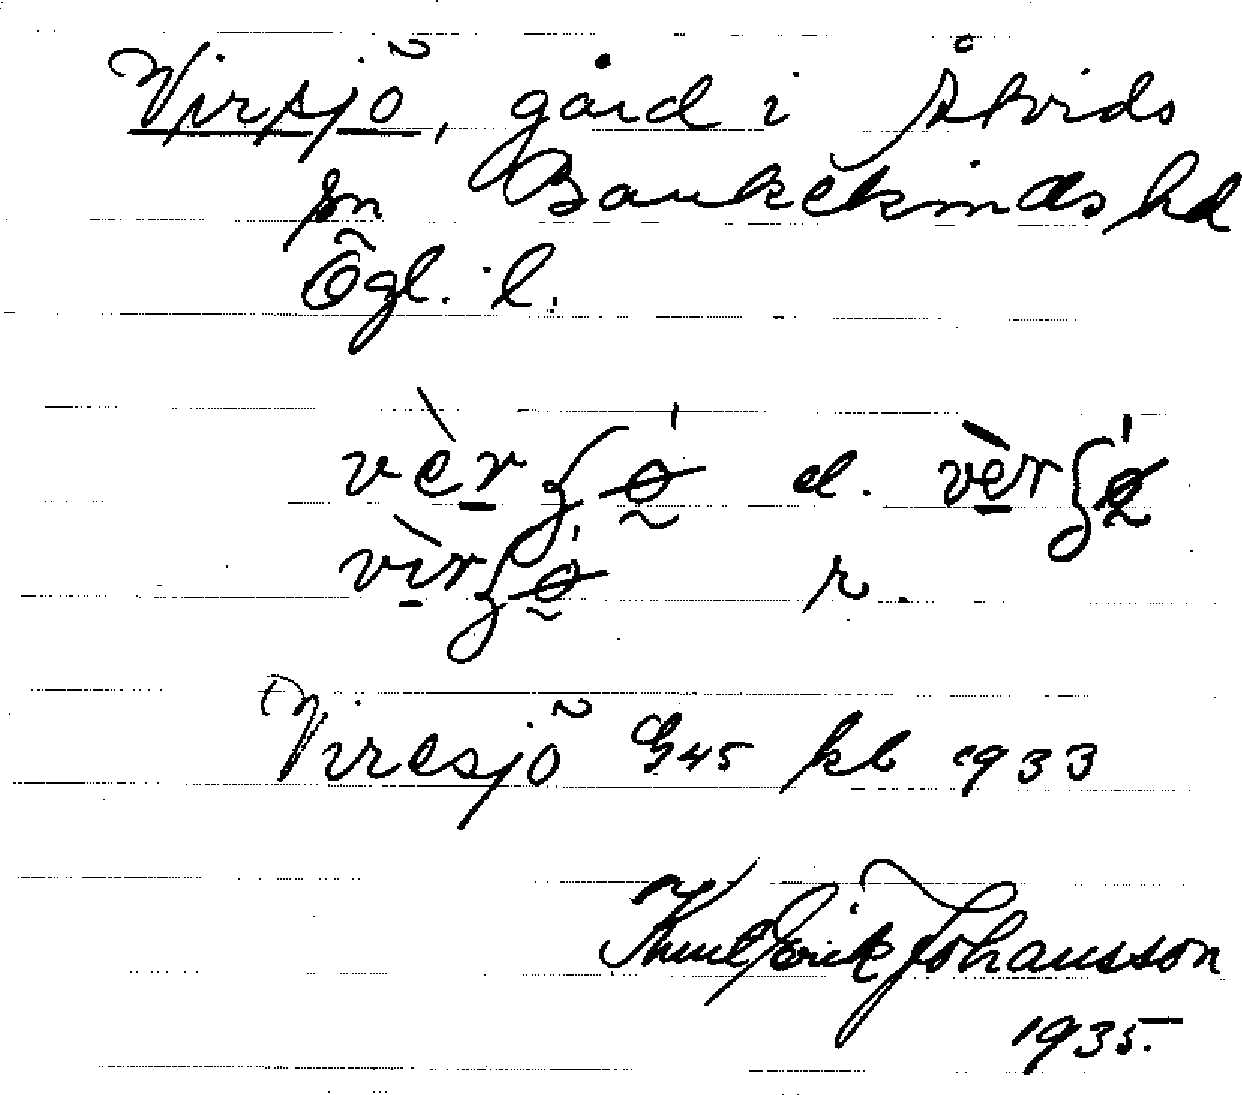 Virsjö, gård i Åtvids
sn Bankekinds hd
Ögl. l.
vèrʃø̀ el. vèrʃø̀
vìrʃø̀ r.
Viresjö G45 kb 1933
Knut Erik Johansson
1935.